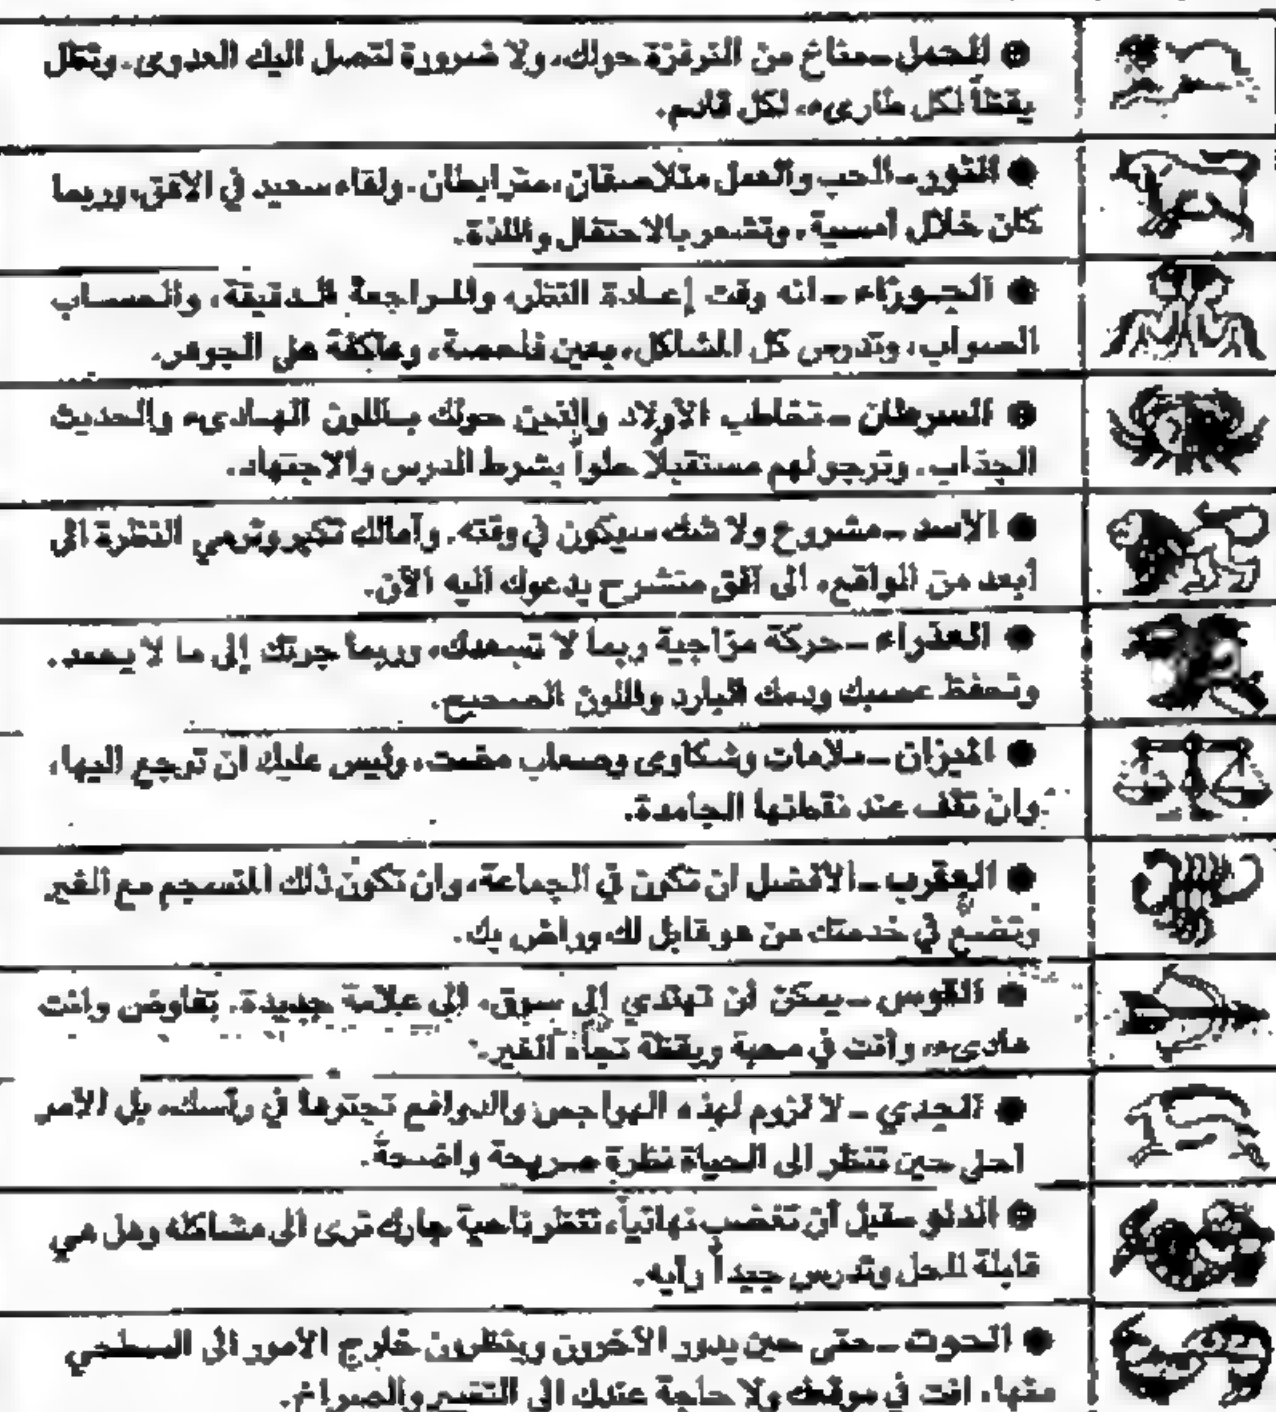 ● الحمل ـ مناخ من النرفزة حولك، ولا ضرورة لتصل اليك العدوى. وتظل
يقظاً لكل طارىء، لكل قادم.
● الثور ـ الحب والعمل متلاصقان، مترابطان. ولقاء سعيد في الافق، وربما
كان خلال أمسية، وتشعر بالاحتفال واللذة.
● الجوزاء ـ انه وقت إعادة النظر، والمراجعة الدقيقة، والحساب
الصواب، وتدرس كل المشاكل، بعين فاحصة، وعاكفة على الجوهر.
● السرطان ـ تخاطب الأولاد والذين حولك باللون الهادىء والحديث
الجذاب. وترجو لهم مستقبلاً حلواً بشرط الدرس والاجتهاد.
● الاسد ـ مشروع ولا شك سيكون في وقته. وآمالك تكبر وترمي النظرة الى
ابعد من الواقع، الى افق منشرح يدعوك اليه الآن.
● العذراء ـ حركة مزاجية ربما لا تسعدك، وربما جرتك إلى ما لا يحمد.
وتحفظ عصبك ودمك البارد واللون الصحيح.
● الميزان ـ ملامات وشكاوى وصعاب مضت، وليس عليك ان ترجع اليها،
وان تقف عند نقطتها الجامدة.
● العقرب ـ الافضل ان تكون في الجماعة، وان تكون ذلك المنسجم مع الغير
وتضع في خدمتك من هو قابل لك وراض بك.
● القوس ـ يمكن أن تهتدي إلى سوق، إلى علامة جديدة. تفاوض وانت
هادىء، وأنت في محبة ويقظة تجاه الغير.
● الجدي ـ لا لزوم لهذه الهواجس والدوافع تجترها في رأسك، بل الأمر
احلى حين تنظر الى الحياة نظرة صريحة واضحة.
● الدلو ـ قبل أن تغضب نهائياً، تنظر ناحية جارك ترى الى مشاكله وهل هي
قابلة للحل وتدرس جيداً رأيه.
● الحوت ـ حتى حين يدور الآخرون وينظرون خارج الامور الى السطحي
منها، انت في موقعك ولا حاجة عندك الى التغيير والصراخ.